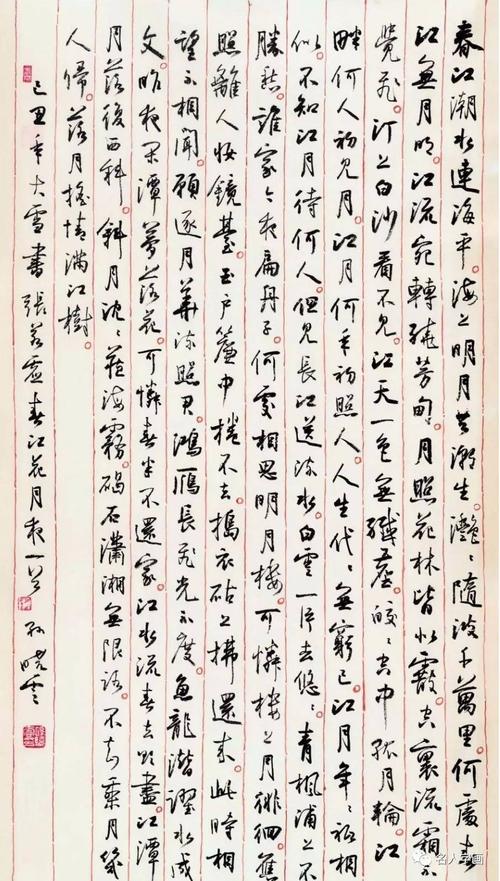 春江潮水連海平。海上明月共潮生。灩〻隨波千萬里。何處春
江無月明。江流宛轉繞芳甸。月照花林皆似霰。空裏流霜不
覺飛。汀上白沙看不見。江天一色無纖塵。皎〻空中孤月輪。江
畔何人初見月。江月何年初照人。人生代〻無窮已。江月年〻祇相
似。不知江月待何人。但見長江送流水。白雲一片去悠〻。青楓浦上不
勝愁。誰家今夜扁舟子。何處相思明月樓。可憐樓上月徘徊。應
照離人妝鏡臺。玉戶簾中捲不去。搗衣砧上拂還來。此時相
望不相聞。願逐月華流照君。鴻雁長飛光不度。魚龍潛躍水成
文。昨夜閑潭夢落花。可憐春半不還家。江水流春去欲盡。江潭
月落復西斜。斜月沈〻藏海霧。碣石瀟湘無限路。不知乘月幾
人歸。落月搖情滿江樹。
己丑年大雪書張若虛春江花月夜一首 孫曉雲
名人字画